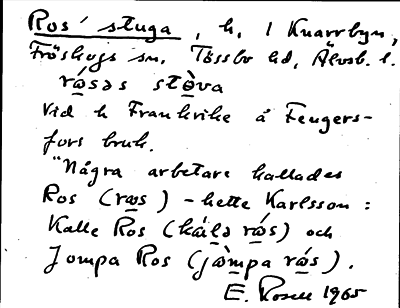 Ros' stuga, h. / Knarrbyn,
Fröskogs sn. Tössbo hd, Älvsb. l.
rå̱səs stò̱va
Vid h Frankrike å Fengers-
fors bruk.
"Några arbetare kallades
Ros (ro̱s) – hette Karlsson:
Kalle Ros (kálə rǻ̱s) och
Jompa Ros (jòmpa rǻ̱s).
E. Rosell 1965